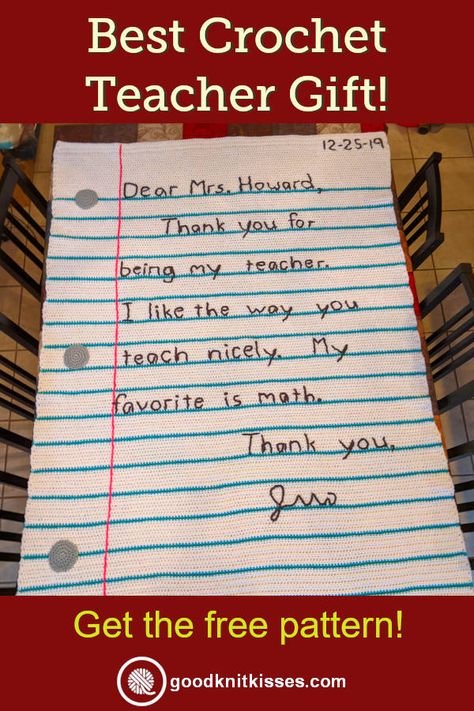 Best Crochet
Teacher Gift!
12-25-19
Dear Mrs. Howard,
Thank you for
being my teacher.
I like the way you
teach nicely. My
favorite is math.
Thank you,
Get the free pattern!
goodknitkisses.com